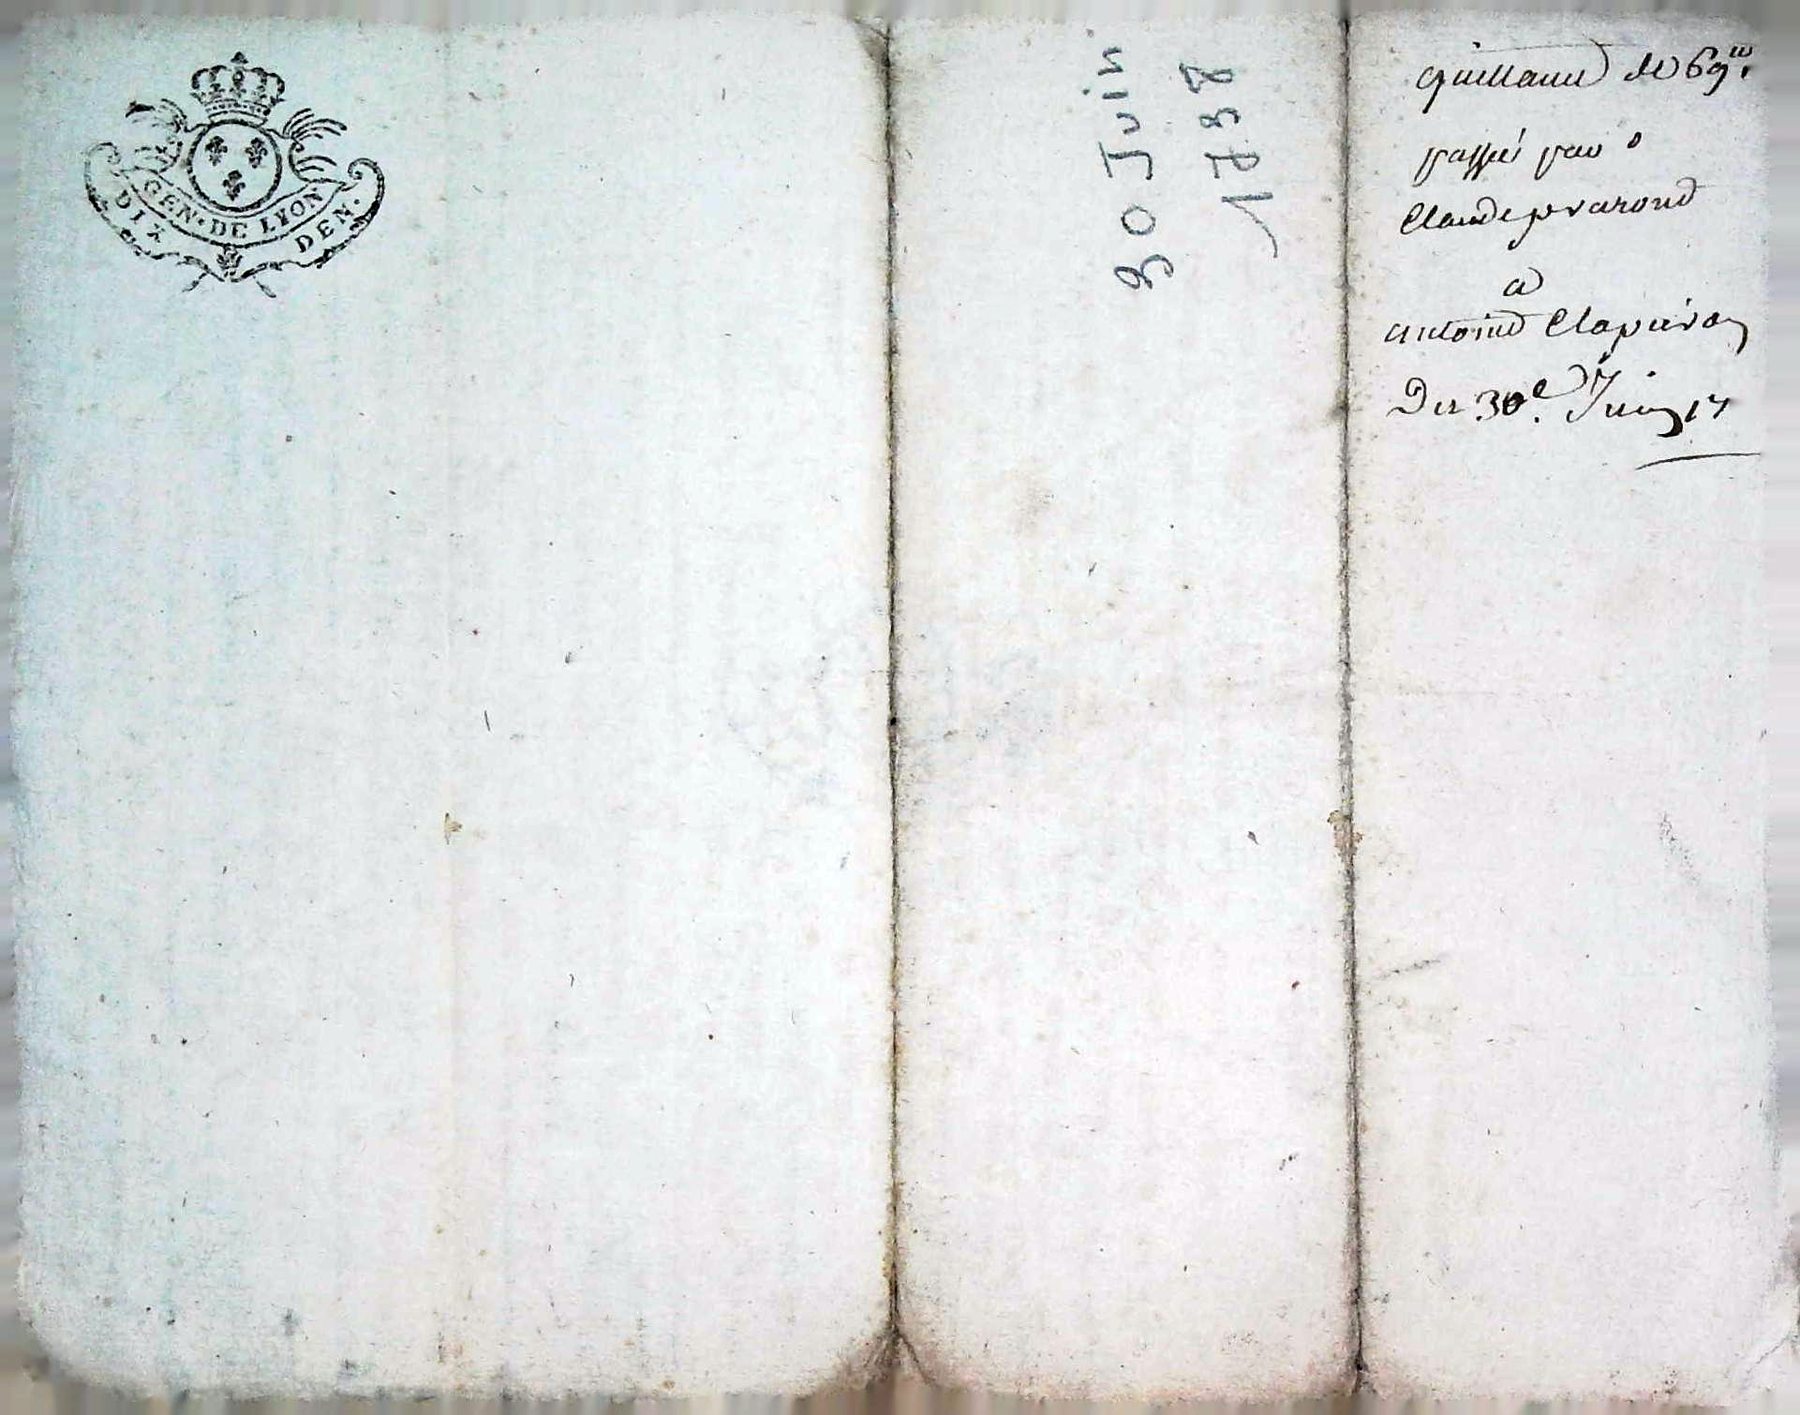 GEN. DE LYON
DIX DEN.
30 Juin
1738
quittance de 69ᵗᵗ
passée par
Claude pvarond
a
antoine Clapeiron
Du 30e. Juin 17